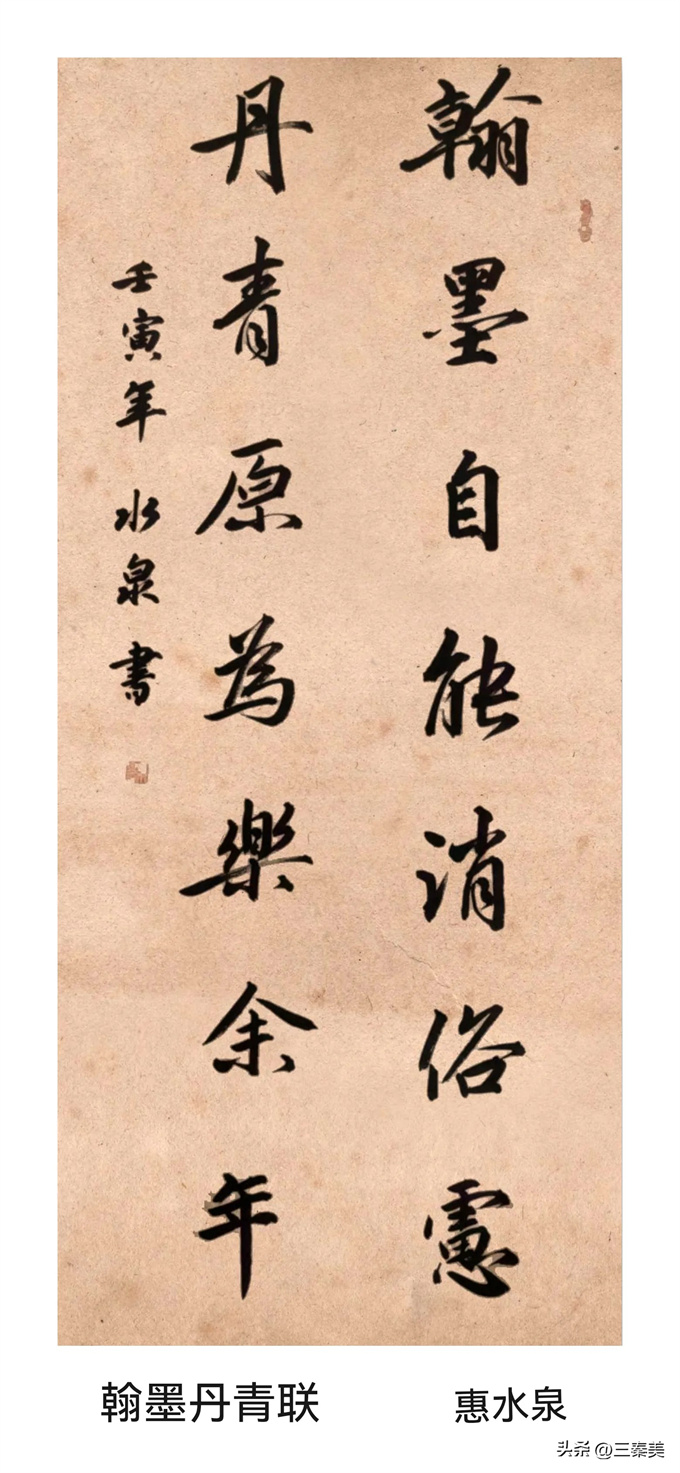 翰墨自能消俗慮
丹青原為樂余年
壬寅年 水泉書
翰墨丹青联
惠水泉
头条 @三秦美